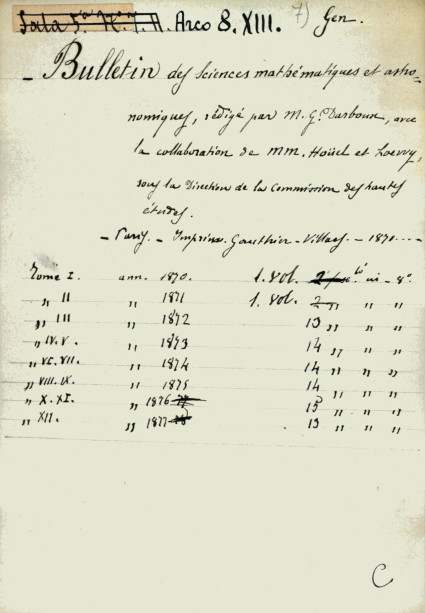 Sala 5ª Nº. 1. A. Arco 8. XIII. 7) Gen.
- Bulletin des sciences mathématiques et astro-
nomiques, rédigé par M. G. Darboux, avec
la collaboration de MM. Hoüel et Loewy,
sous la Direction de la Commission des hautes
études.
- Paris - Imprim. Gauthier-Villars - 1871 ----
Tome I. ann. 1870. 1. vol. in - 8º.
" II " 1871 1. vol. 2 " " "
" III " 1872 13 " " "
" IV. V. " 1873 14 " " "
" VI. VII. " 1874 14 " " "
" VIII. IX. " 1875 14 " " "
" X. XI. " 1876 15 " " "
" XII. " 1877 13 " " "
C